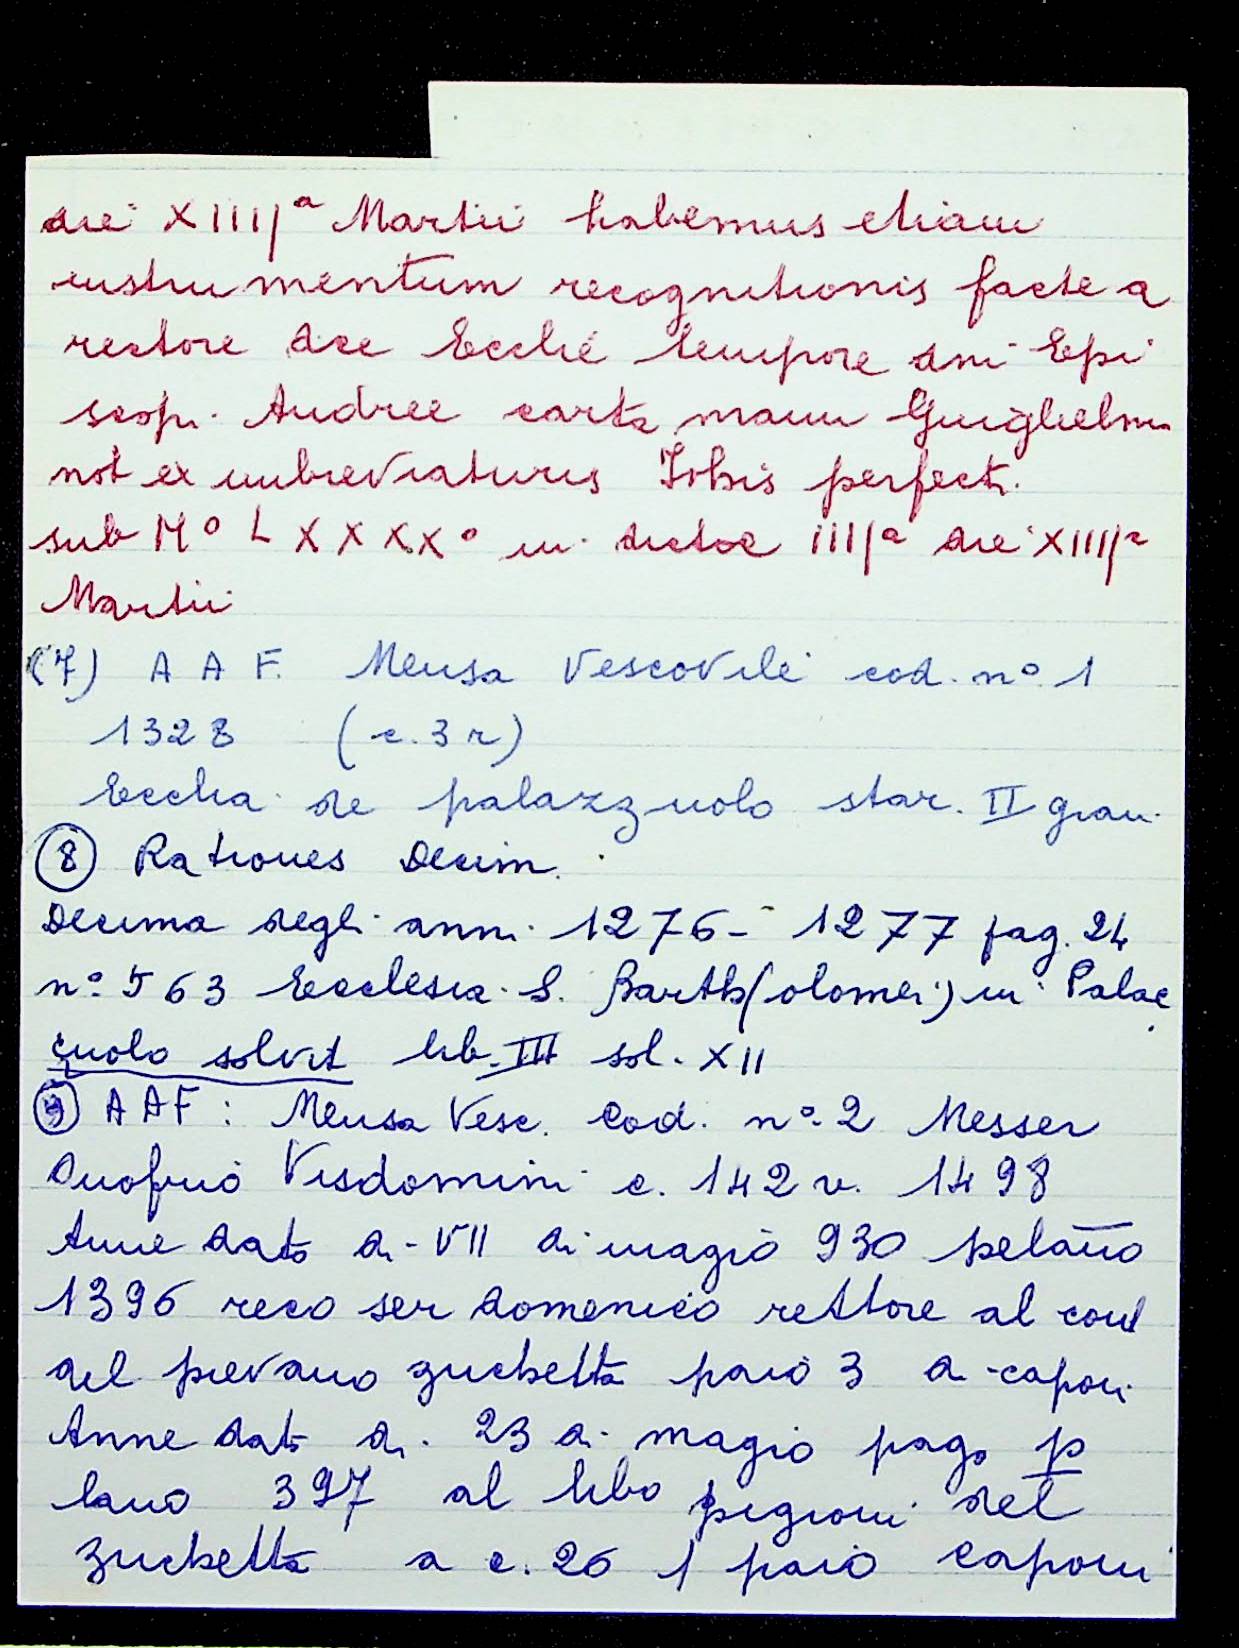 die XIIIIª Martii habemus etiam
instrumentum recognitionis facte a
rectore dce Ecclie tempore dni Epi
scopi Andree carta manu Guiglielmi
not ex imbreviaturis Iohis perfecti.
sub Mº L X X X Xº in dictoe IIIIª die XIIIIª
Martii
(7) A A F. Mensa Vescovile cod. nº. 1
1328 (c. 3 r)
Ecclia de palazzuolo star. II gran.
(8) Rationes Decim.
Decima degli anni 1276 - 1277 pag. 24
nº. 563 Ecclesia S. Barth(olomei) in Palac
çuolo solvit lib. III sol. XII
(9) A A F : Mensa Vesc. Cod. nº. 2 Messer
Onofrio Visdomini c. 142 v. 1498
Anne dato di VII di magio 930 pelano
1396 reco ser domenico rettore al cont
del pievano zuchetta paio 3 di capon.
Anne dato di 23 di magio pago p
lano 397 al libo pigioni del
zuchetta a c. 26 1 paio caponi